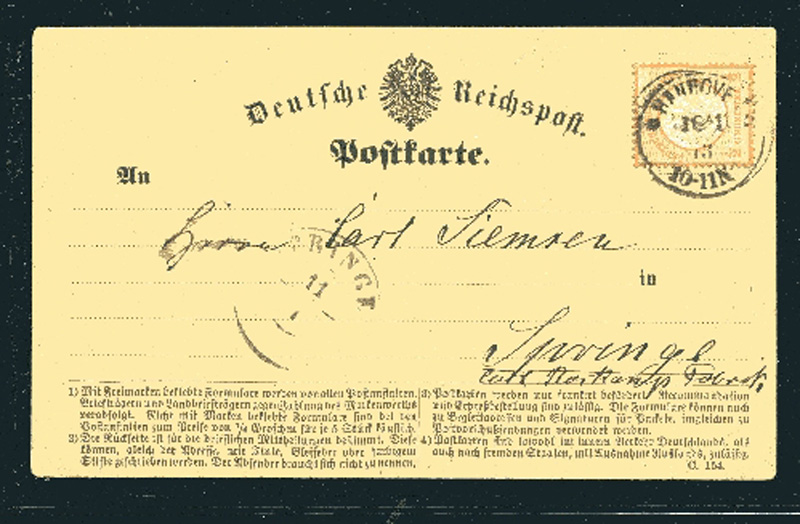 Deutsche Reichspost.
Postkarte.
HANNOVER
10-11N
An
Herrn Carl Siemsen
SPRINGE
11
1
in
Springe
1) Mit Freimarken beklebte Formulare werden von allen Postanstalten,
Briefträgern und Landbriefträgern gegen Zahlung des Markenwerths
verabfolgt. Nicht mit Marken beklebte Formulare sind bei den
Postanstalten zum Preise von ¼ Groschen für je 5 Stück käuflich.
2) Die Rückseite ist für die brieflichen Mittheilungen bestimmt. Diese
können, gleich der Adresse, mit Tinte, Bleifeder oder farbigem
Stifte geschrieben werden. Der Absender braucht sich nicht zu nennen.
3) Postkarten werden nur frankirt befördert. Recommandation
und Expreßbestellung sind zulässig. Die Formulare können auch
zu Begleitadressen und Signaturen für Packete, imgleichen zu
Postvorschußsendungen verwendet werden.
4) Postkarten sind sowohl im innern Verkehr Deutschlands, als
auch nach fremden Staaten, mit Ausnahme Rußlands, zulässig.
C. 154.